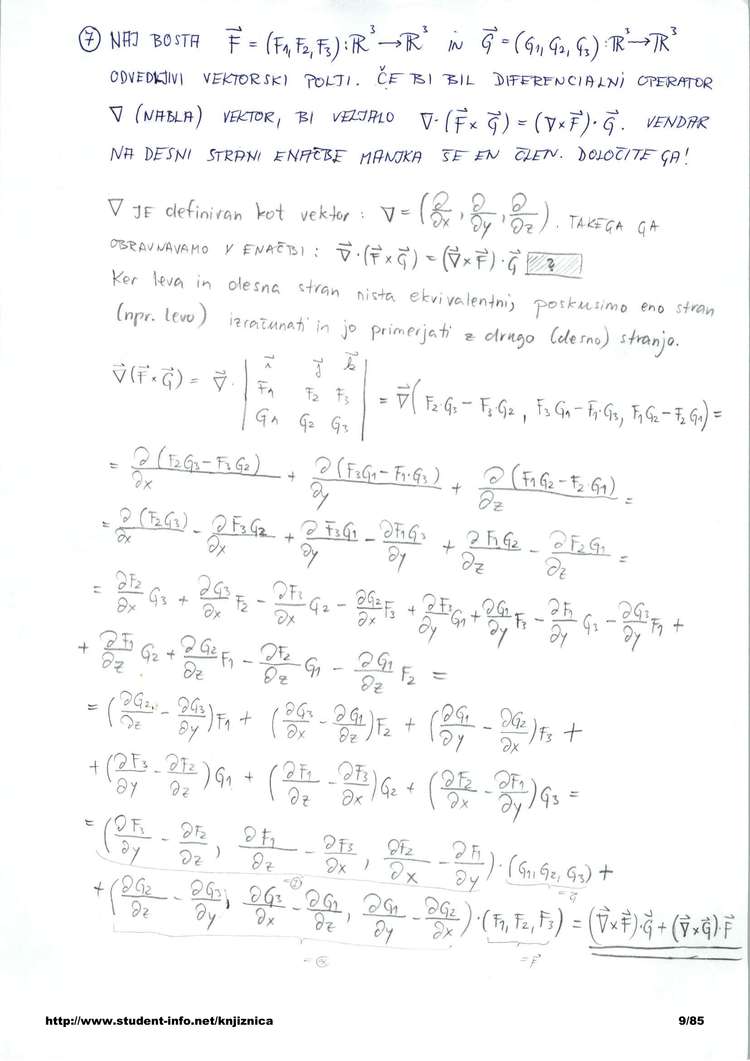 ⑦ NAJ BOSTA F⃗ = (F₁, F₂, F₃) : ℝ³ → ℝ³ IN G⃗ = (G₁, G₂, G₃) : ℝ³ → ℝ³
ODVEDLJIVI VEKTORSKI POLJI. ČE BI BIL DIFERENCIALNI OPERATOR
∇ (NABLA) VEKTOR, BI VELJALO ∇·(F⃗ × G⃗) = (∇×F⃗)·G⃗. VENDAR
NA DESNI STRANI ENAČBE MANJKA ŠE EN ČLEN. DOLOČITE GA!
∇ JE definiran kot vektor : ∇ = (∂/∂x, ∂/∂y, ∂/∂z). TAKEGA GA
OBRAVNAVAMO V ENAČBI : ∇⃗·(F⃗×G⃗) = (∇⃗×F⃗)·G⃗ ?
Ker leva in desna stran nista ekvivalentni, poskusimo eno stran
(npr. levo) izračunati in jo primerjati z drugo (desno) stranjo.
∇⃗(F⃗×G⃗) = ∇⃗· | i⃗ j⃗ k⃗ ; F₁ F₂ F₃ ; G₁ G₂ G₃ | = ∇⃗(F₂·G₃ − F₃·G₂ , F₃G₁ − F₁·G₃, F₁G₂ − F₂G₁) =
= ∂(F₂G₃−F₃G₂)/∂x + ∂(F₃G₁−F₁·G₃)/∂y + ∂(F₁G₂−F₂·G₁)/∂z =
= ∂(F₂G₃)/∂x − ∂F₃G₂/∂x + ∂F₃G₁/∂y − ∂F₁G₃/∂y + ∂F₁G₂/∂z − ∂F₂G₁/∂z =
= ∂F₂/∂x G₃ + ∂G₃/∂x F₂ − ∂F₃/∂x G₂ − ∂G₂/∂x F₃ + ∂F₃/∂y G₁ + ∂G₁/∂y F₃ − ∂F₁/∂y G₃ − ∂G₃/∂y F₁ +
+ ∂F₁/∂z G₂ + ∂G₂/∂z F₁ − ∂F₂/∂z G₁ − ∂G₁/∂z F₂ =
= (∂G₂/∂z − ∂G₃/∂y)F₁ + (∂G₃/∂x − ∂G₁/∂z)F₂ + (∂G₁/∂y − ∂G₂/∂x)F₃ +
+ (∂F₃/∂y − ∂F₂/∂z)G₁ + (∂F₁/∂z − ∂F₃/∂x)G₂ + (∂F₂/∂x − ∂F₁/∂y)G₃ =
= (∂F₃/∂y − ∂F₂/∂z , ∂F₁/∂z − ∂F₃/∂x , ∂F₂/∂x − ∂F₁/∂y)·(G₁, G₂, G₃) +
= G⃗
+ (∂G₂/∂z − ∂G₃/∂y, ∂G₃/∂x − ∂G₁/∂z, ∂G₁/∂y − ∂G₂/∂x)·(F₁, F₂, F₃) = (∇⃗×F⃗)·G⃗ + (∇⃗×G⃗)·F⃗
= F⃗
http://www.student-info.net/knjiznica 9/85